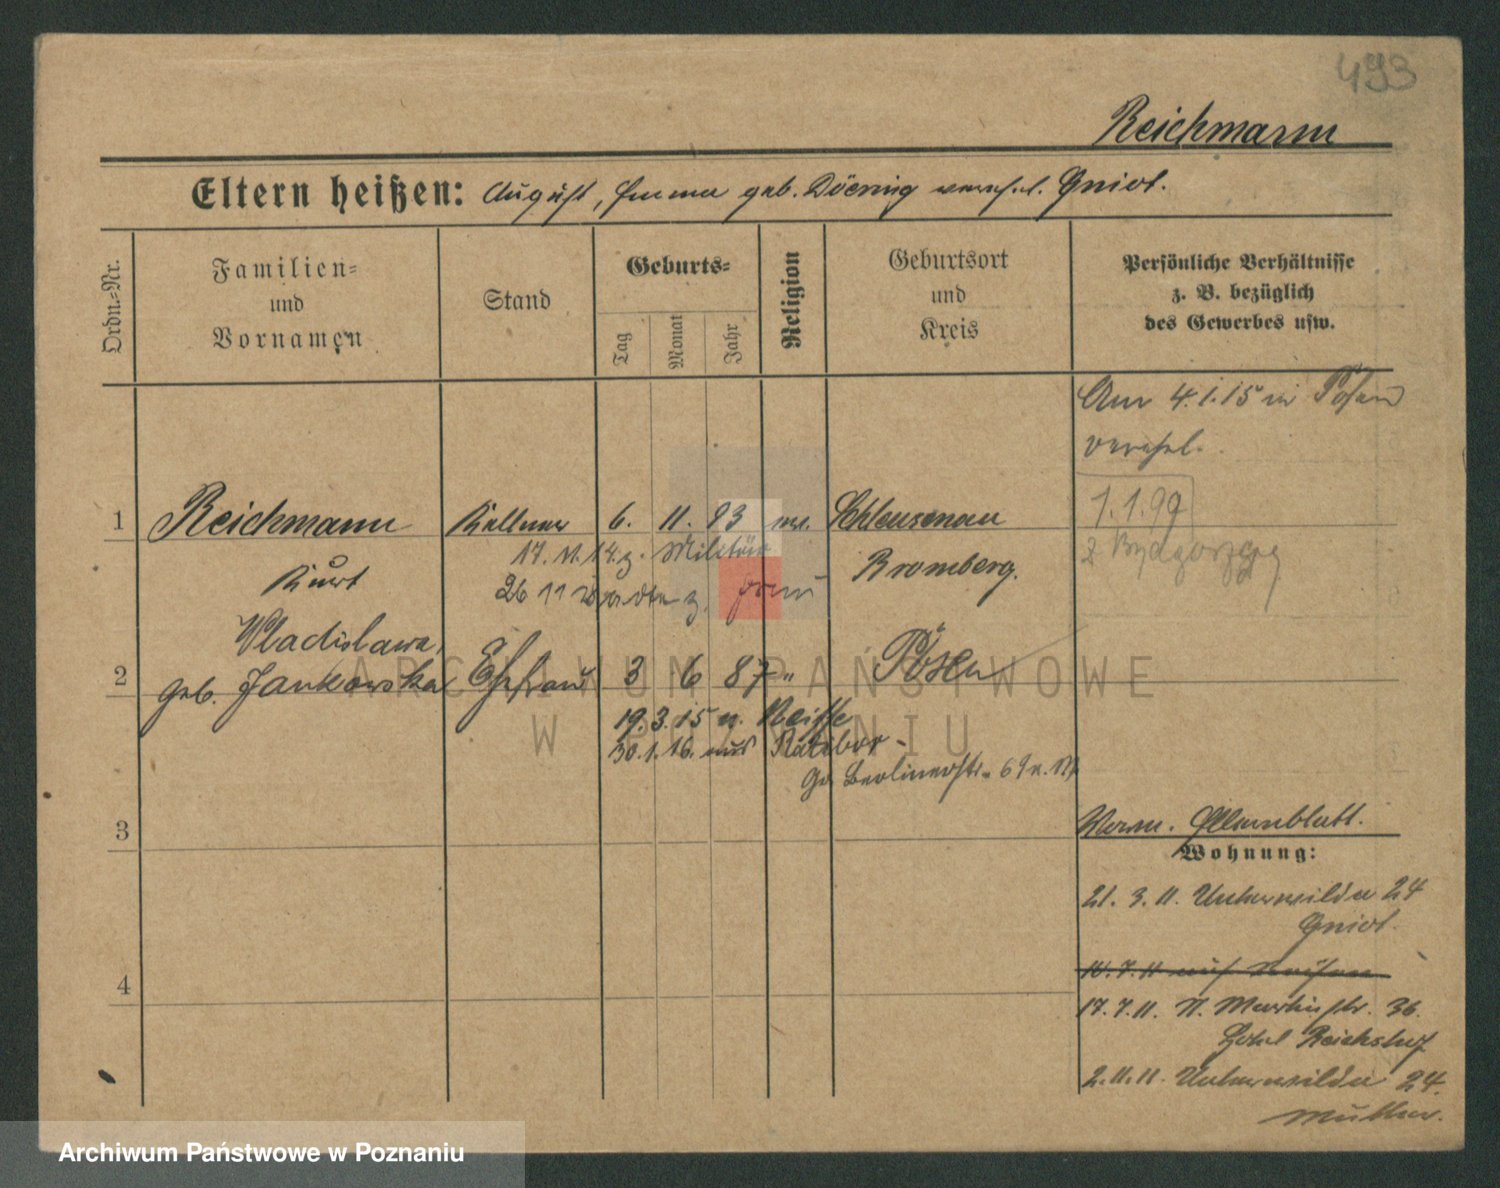 493
Reichmann
Eltern heißen: August, Emma geb. Döring verehel. Gniot.
Ordn.-Nr.
Familien-
und
Vornamen
Stand
Geburts-
Tag
Monat
Jahr
Religion
Geburtsort
und
Kreis
Persönliche Verhältnisse
z. B. bezüglich
des Gewerbes usw.
Am 4.1.15 in Posen
verehel.
1 Reichmann Kellner 6. 11. 83 ev. Schleusenau
1.1.99
Kurt
17. 11. 14. z. Militär
Bromberg.
z Bydgoszczy
26 11 z.
Wladislawa,
2 geb. Jankowska Ehefrau 3 6 87 " Posen
19.3.15 n. Neisse
30.1.16. aus Ratibor -
Gr. Berlinerstr. 69
3
Elternblatt.
Wohnung:
21. 3. 11. Unterwilda 24
Gniot.
4
14.7.11 auf Reisen
17.7.11. N. Martinstr. 36.
Hotel Reichshof
2.11.11. Unterwilda 24.
Mutter.
ARCHIWUM PAŃSTWOWE
W POZNANIU
Archiwum Państwowe w Poznaniu